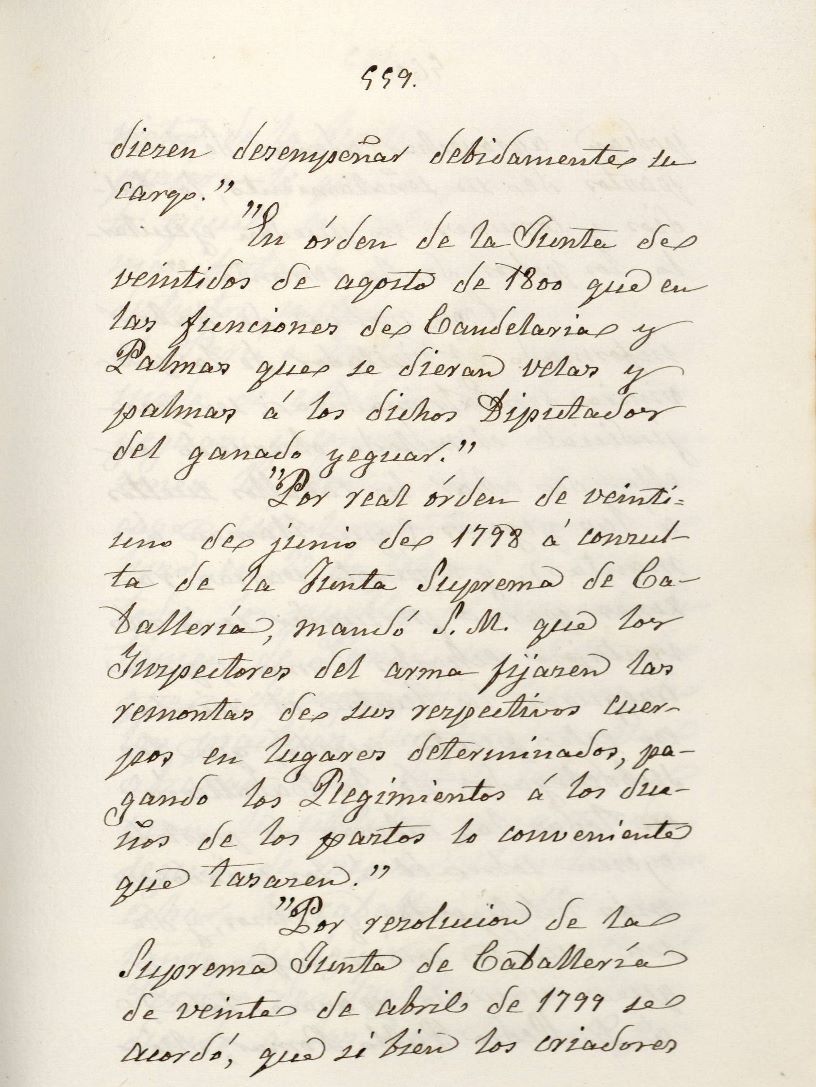 559.
diesen desempeñar debidamente su
cargo."
"En órden de la Junta de
veintidos de agosto de 1800 que en
las funciones de Candelaria y
Palmas que se dieran velas y
palmas á los dichos Diputados
del ganado yeguar."
"Por real órden de veinti=
uno de junio de 1798 á consul-
ta de la Junta Suprema de Ca-
ballería, mandó S. M. que los
Inspectores del arma fijasen las
remontas de sus respectivos cuer-
pos en lugares determinados, pa-
gando los Regimientos á los due-
ños de los partos lo conveniente
que tasasen."
"Por resolucion de la
Suprema Junta de Caballería
de veinte de abril de 1799 se
acordó, que si bien los criadores